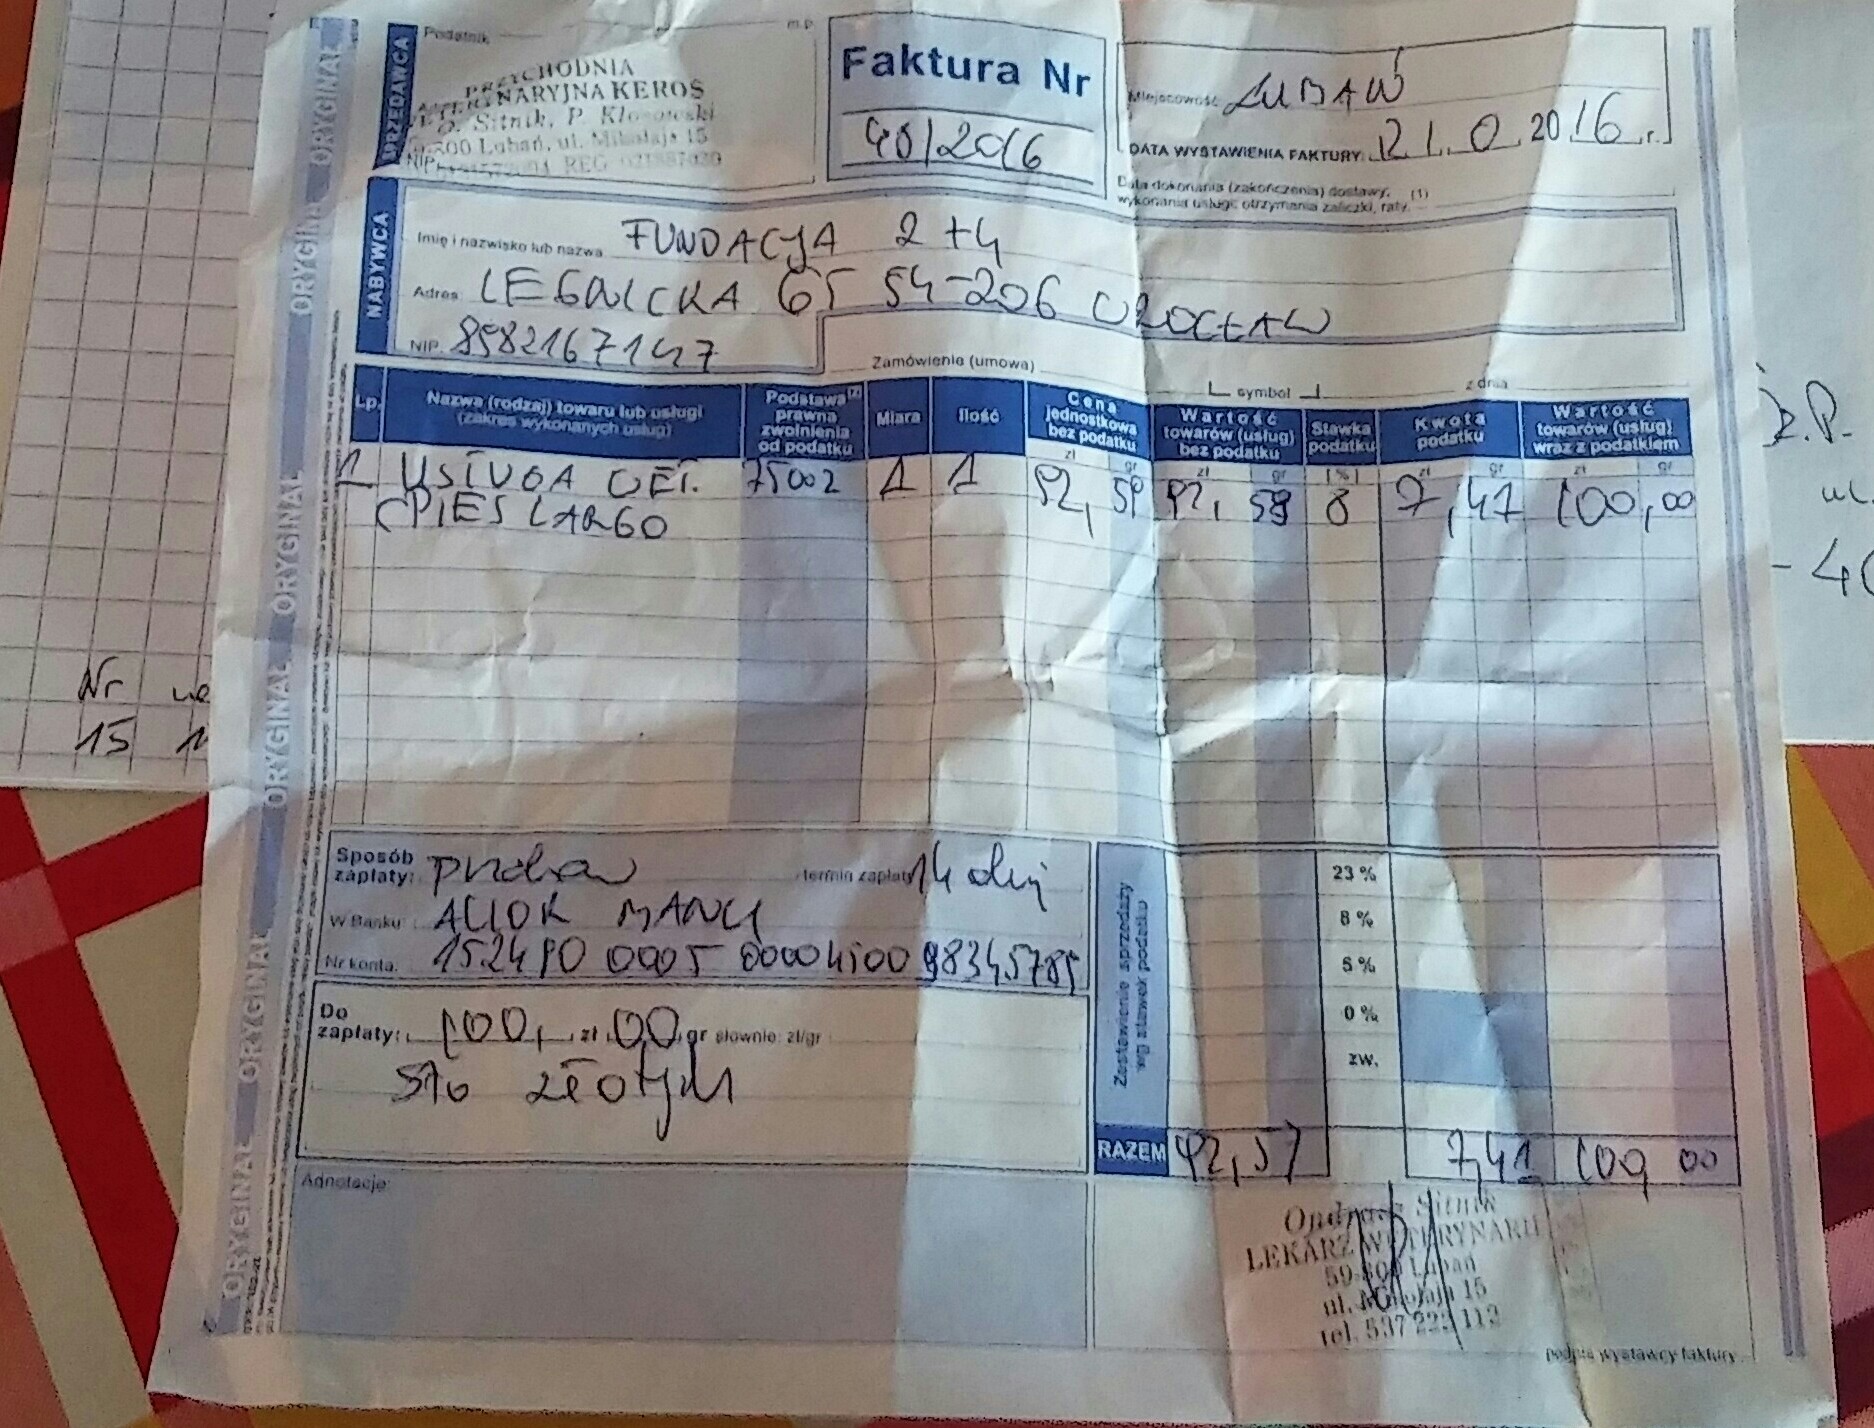 ORYGINAL ORYGINAL ORYGINAL ORYGINAL ORYGINAL ORYGINAL ORYGINAL
SPRZEDAWCA
Podatnik
m.p.
PRZYCHODNIA
WETERYNARYJNA KEROS
O. Sitnik, P. Kłosowski
59-800 Lubań, ul. Mikołaja 15
NIP
REG
Faktura Nr
40/2016
Miejscowość LUBAŃ
DATA WYSTAWIENIA FAKTURY: 2016 r.
Data dokonania (zakończenia) dostawy, (1)
wykonania usługi, otrzymania zaliczki, raty
NABYWCA
Imię i nazwisko lub nazwa FUNDACJA 2+4
Adres: LEGNICKA 65 54-206 WROCŁAW
NIP 8982167147
Zamówienie (umowa)
symbol
z dnia
Lp. Nazwa (rodzaj) towaru lub usługi (zakres wykonanych usług) Podstawa prawna zwolnienia od podatku Miara Ilość Cena jednostkowa bez podatku Wartość towarów (usług) bez podatku Stawka podatku Kwota podatku Wartość towarów (usług) wraz z podatkiem
zł gr zł gr (%) zł gr zł gr
1 USŁUGA WET. 75002 1 1 92,59 92,59 8 7,41 100,00
(PIES LARGO
Sposób zapłaty: przelew termin zapłaty 14 dni
W Banku: ALIOR BANK
Nr konta: 152490 0005 0000 4500 98345785
Do zapłaty: 100, zł 00 gr słownie: zł/gr
STO ZŁOTYCH
Zestawienie sprzedaży wg stawek podatku
23 %
8 %
5 %
0 %
zw.
RAZEM 92,59 7,41 100 00
Adnotacje:
Sitnik
LEKARZ WETERYNARII
59-800 Lubań
ul. Mikołaja 15
tel. 537 222 112
podpis wystawcy faktury
Nr
15
ul.